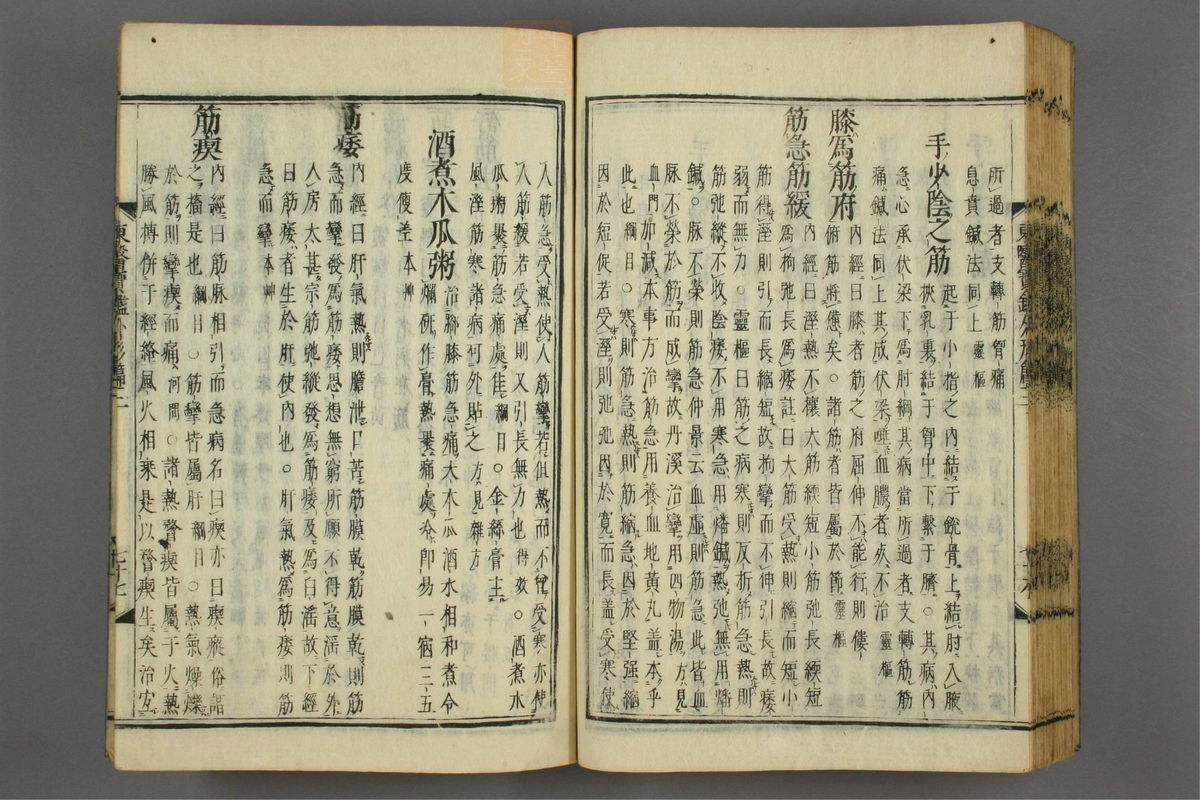 所過者支轉筋胷痛
息賁鍼法同上靈樞
手少陰之筋 起于小指之內結于銳骨上結肘入腋
挾乳裏結于胷中下繫于臍○其病內
急心承伏梁下爲肘綱其病當所過者支轉筋筋
痛鍼法同上其成伏梁唾血膿者死不治靈樞
膝爲筋府 內經曰膝者筋之府屈伸不能行則僂
俯筋將憊矣○諸筋者皆屬於節靈樞
筋急筋緩 內經曰溼熱不攘大筋緛短小筋弛長緛短
爲拘弛長爲痿註曰大筋受熱則縮而短小
筋得溼則引而長縮短故拘攣而不伸引長故痿
弱而無力○靈樞曰筋之病寒則反折筋急熱則
筋弛縱不收陰痿不用寒急用燔鍼熱弛無用燔
鍼○脉不榮則筋急仲景云血虛則筋急此皆血
脉不榮於筋而成攣故丹溪治攣用四物湯方見
血門加減本事方治筋急用養血地黃丸盖本乎
此也綱目○寒則筋急熱則筋縮急因於堅强縮
因於短促若受溼則弛弛因於寬而長盖受寒使
人筋急受熱使人筋攣若但熱而不曾受寒亦使
人筋緩若受溼則又引長無力也得效○酒煮木
瓜粥筋急處佳綱目○金絲膏主
風溼筋寒諸病可外貼之方見雜方
酒煮木瓜粥 治脚膝筋急痛大木瓜酒水相和煮令
爛硏作膏熱褁痛處冷卽易一宿三五
度便差本草
筋痿 內經曰肝氣熱則膽泄口苦筋膜乾筋膜乾則筋
急而攣發爲筋痿思想無窮所願不得意淫於外
入房太甚宗筋弛縱發爲筋痿及爲白淫故下經
曰筋痿者生於肝使內也○肝氣熱爲筋痿則筋
急而攣本艸
筋瘈 內經曰筋脉相引而急病名曰瘈亦曰瘈瘲俗謂
之搐是也綱目○筋攣皆屬肝綱目○熱氣燥爍
於筋則攣瘈而痛河間○諸熱瞀瘈皆屬于火熱
勝風搏併于經絡風火相乘是以瞀瘈生矣治宜